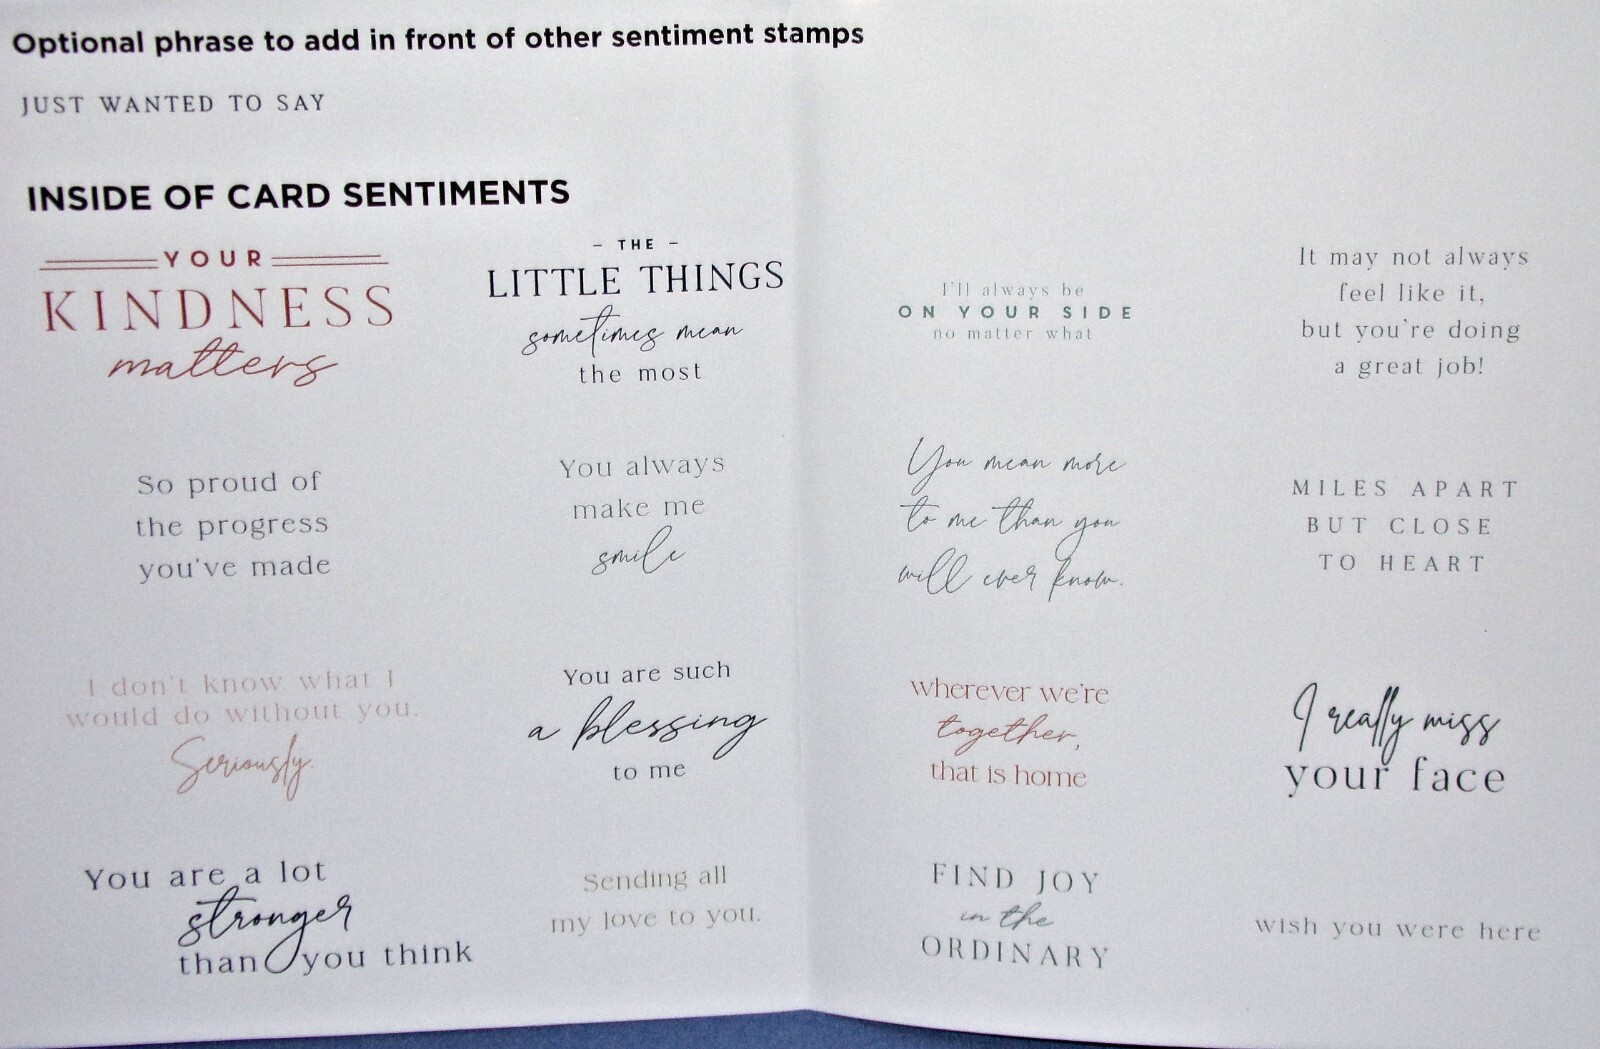 Optional phrase to add in front of other sentiment stamps
JUST WANTED TO SAY
INSIDE OF CARD SENTIMENTS
YOUR
KINDNESS
matters
- THE -
LITTLE THINGS
sometimes mean
the most
I'll always be
ON YOUR SIDE
no matter what
It may not always
feel like it,
but you're doing
a great job!
So proud of
the progress
you've made
You always
make me
smile
You mean more
to me than you
will ever know.
MILES APART
BUT CLOSE
TO HEART
I don't know what I
would do without you.
Seriously.
You are such
a blessing
to me
wherever we're
together,
that is home
I really miss
your face
You are a lot
stronger
than you think
Sending all
my love to you.
FIND JOY
in the
ORDINARY
wish you were here